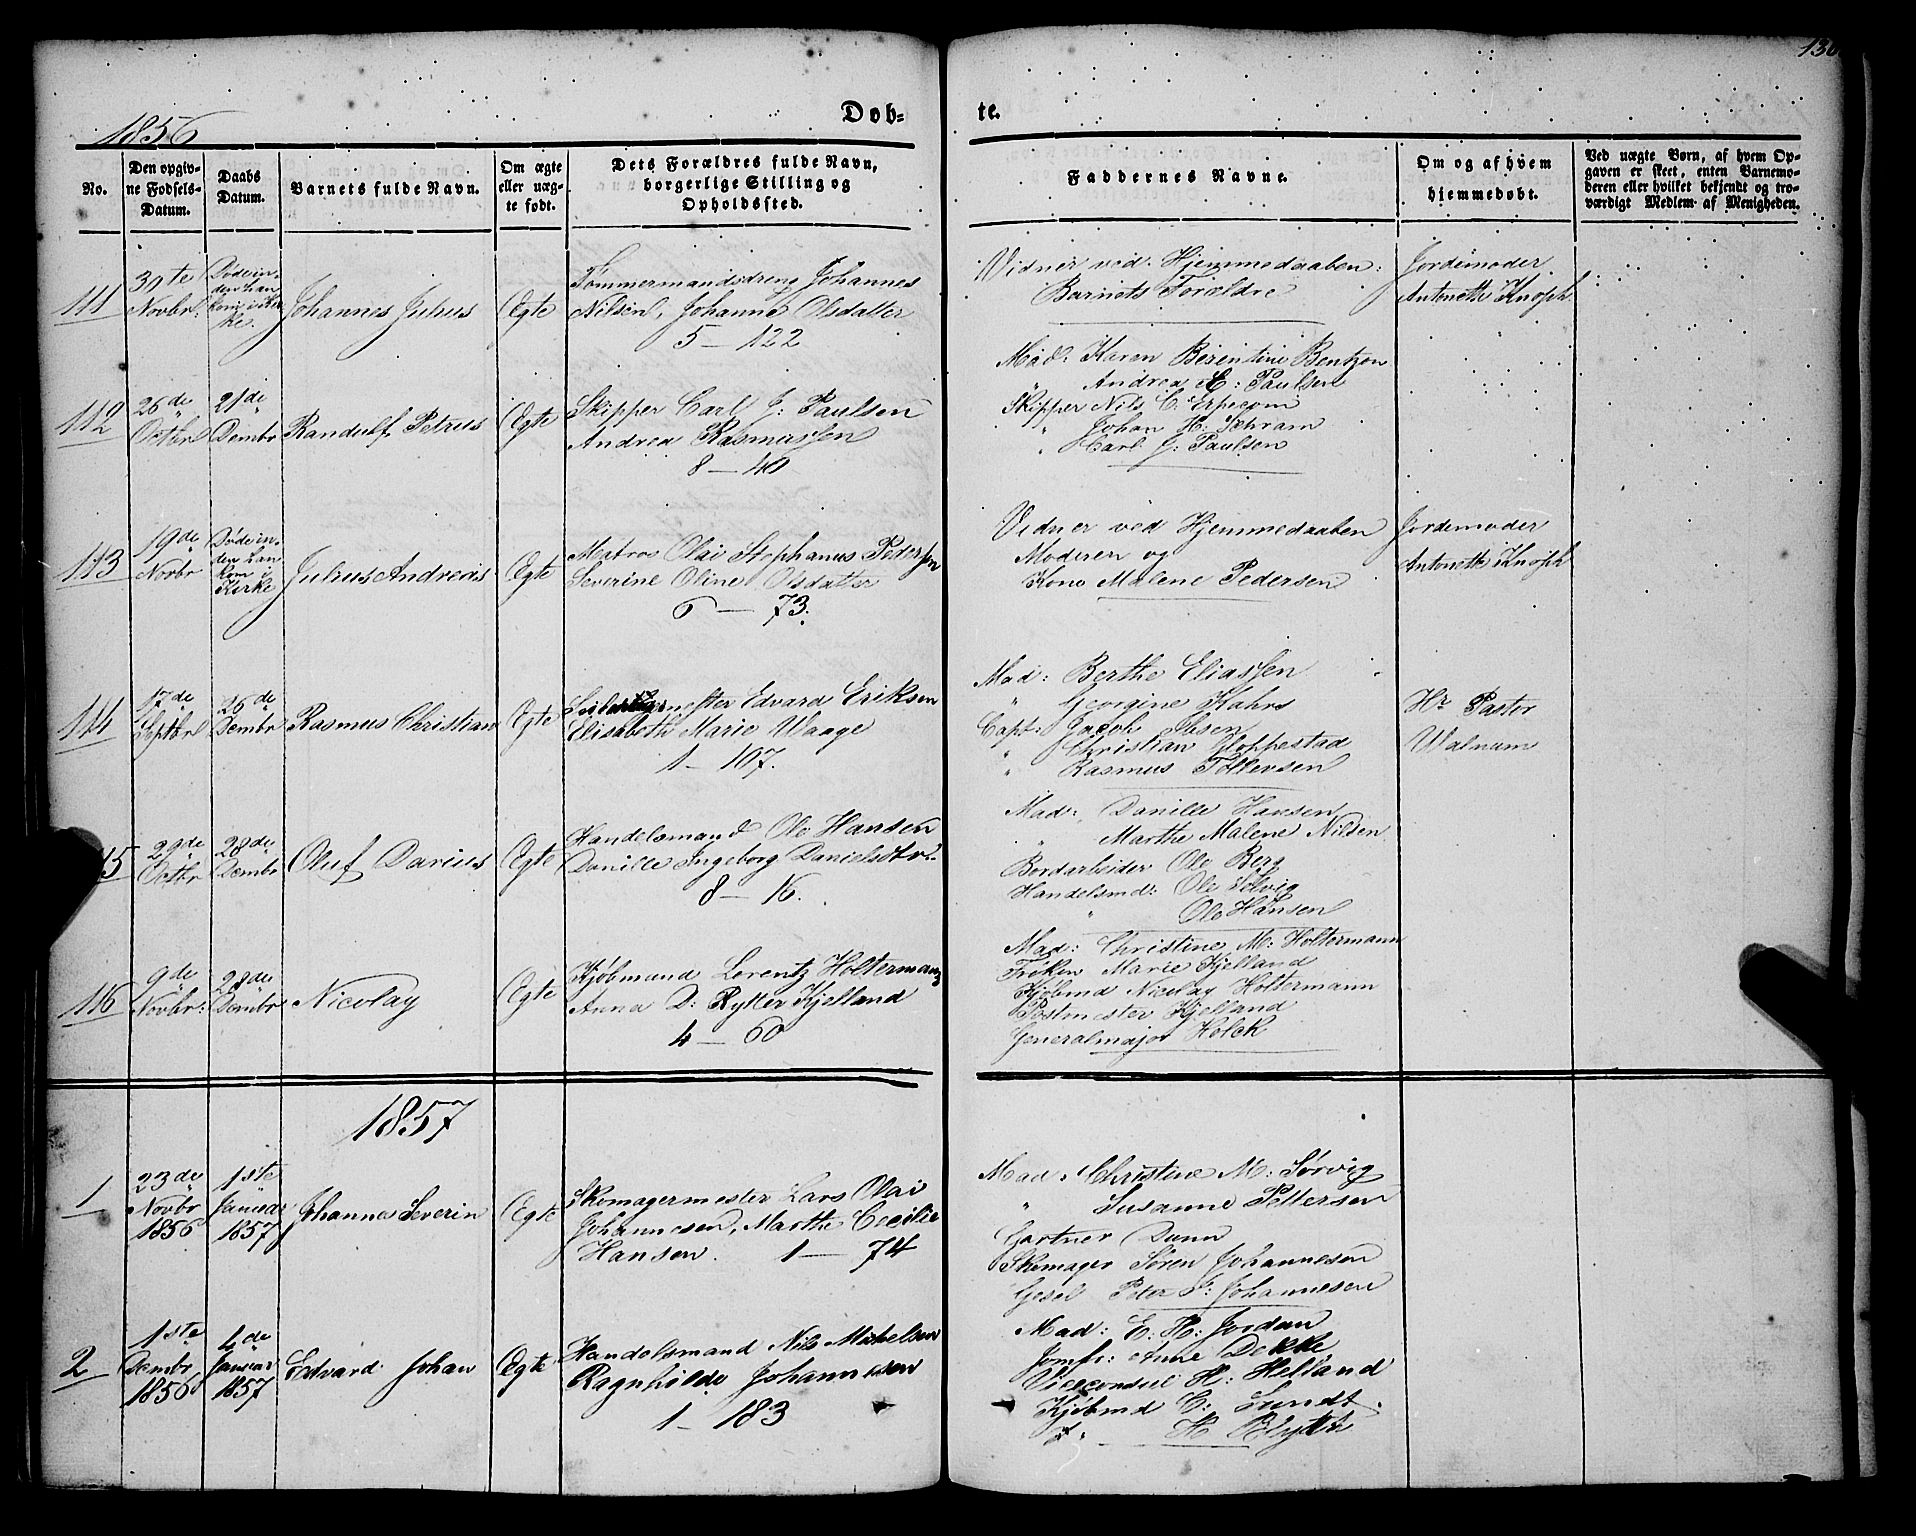 130
1856
Døb-
te.
No.
Den opgiv-
ne Fødsels-
Datum.
Daabs
Datum.
Barnets fulde Navn.
Om ægte
eller uæg-
te født.
Dets Forældres fulde Navn,
borgerlige Stilling og
Opholdssted.
Faddernes Navne.
Om og af hvem
hjemmedøbt.
Ved uægte Børn, af hvem Op-
gaven er skeet, enten Barnemo-
deren eller hvilket bekjendt og tro-
værdigt Medlem af Menigheden.
111
30te
Novbr.
Døde in-
den han
kom i Kir-
ke.
Johannes Julius
Ægte
Tømmermandsdreng Johannes
Nilsen, Johanne Olsdatter
5 - 122
Vidner ved Hjemmedaaben:
Barnets Forældre
Jordemoder
Antonette Knoph
112
26de
Octbr
21de
Dembr
Randulf Petrus
Ægte
Skipper Carl J: Paulsen
Andrea Rasmussen
8 - 40
Mad: Karen Berentine Bentzon
" Andrea E: Paulsen
Skipper Nils C. Erpecom
" Johan H: Schram
" Carl J: Paulsen
113
19de
Novbr
Døde in-
den han
kom i
Kirke
Julius Andreas
Ægte
Matros Olai Stephanus Pedersen
Severine Oline Olsdatter
6 - 73.
Vidner ved Hjemmedaaben
Moderen og
Kone Malene Pedersen
Jordemoder
Antonette Knoph
114
17de
Septbr
26de
Dembr
Rasmus Christian
Ægte
Edvard Eriksen
Elisabeth Marie Waage
1 - 107.
Mad: Berthe Eliassen
" Georgine Kahrs
Capt: Jacob Ibsen
" Christian Gloppestad
" Rasmus Tollevsen
Hr Pastor
Walnum
15
29de
Octbr
28de
Dembr
Oluf Darius
Ægte
Handelsmand Ole Hansen
Danille Ingeborg Danielsdtr
8 - 16.
Mad: Danille Hansen
" Marthe Malene Nilsen
Bordarbeider Ole Berg
Handelsmd: Ole Solvig
" Ole Hansen
116
9de
Novbr:
28de
Dembr
Nicolay
Ægte
Kjøbmand Lorentz Holtermann
Anna D: Rytter Kjelland
4 - 60
Mad: Christine M: Holtermann
Frøken Marie Kjelland
Kjøbmd Nicolay Holtermann
Postmester Kjelland
Generalmajor Holck
1857
1
23de
Novbr
1856
1ste
Januar
1857
Johannes Severin
Ægte
Skomagermester Lars Olai
Johannesen, Marthe Cecilie
Hansen. 1 - 74
Mad: Christine M: Sørvig
" Susanne Pettersen
Gartner Dunn
Skomager Søren Johannesen
Gesel Peter J: Johannesen
2
1ste
Dembr
1856
4de
Januar
1857
Edvard Johan
Ægte
Handelsmand Nils Mikelsen
Ragnhilde Johannesen
1 - 183
Mad: E: H: Jordan
Jomfr: Anne Dekke
Viceconsul H: Helland
Kjøbmd C: Sundt
" H Blydt